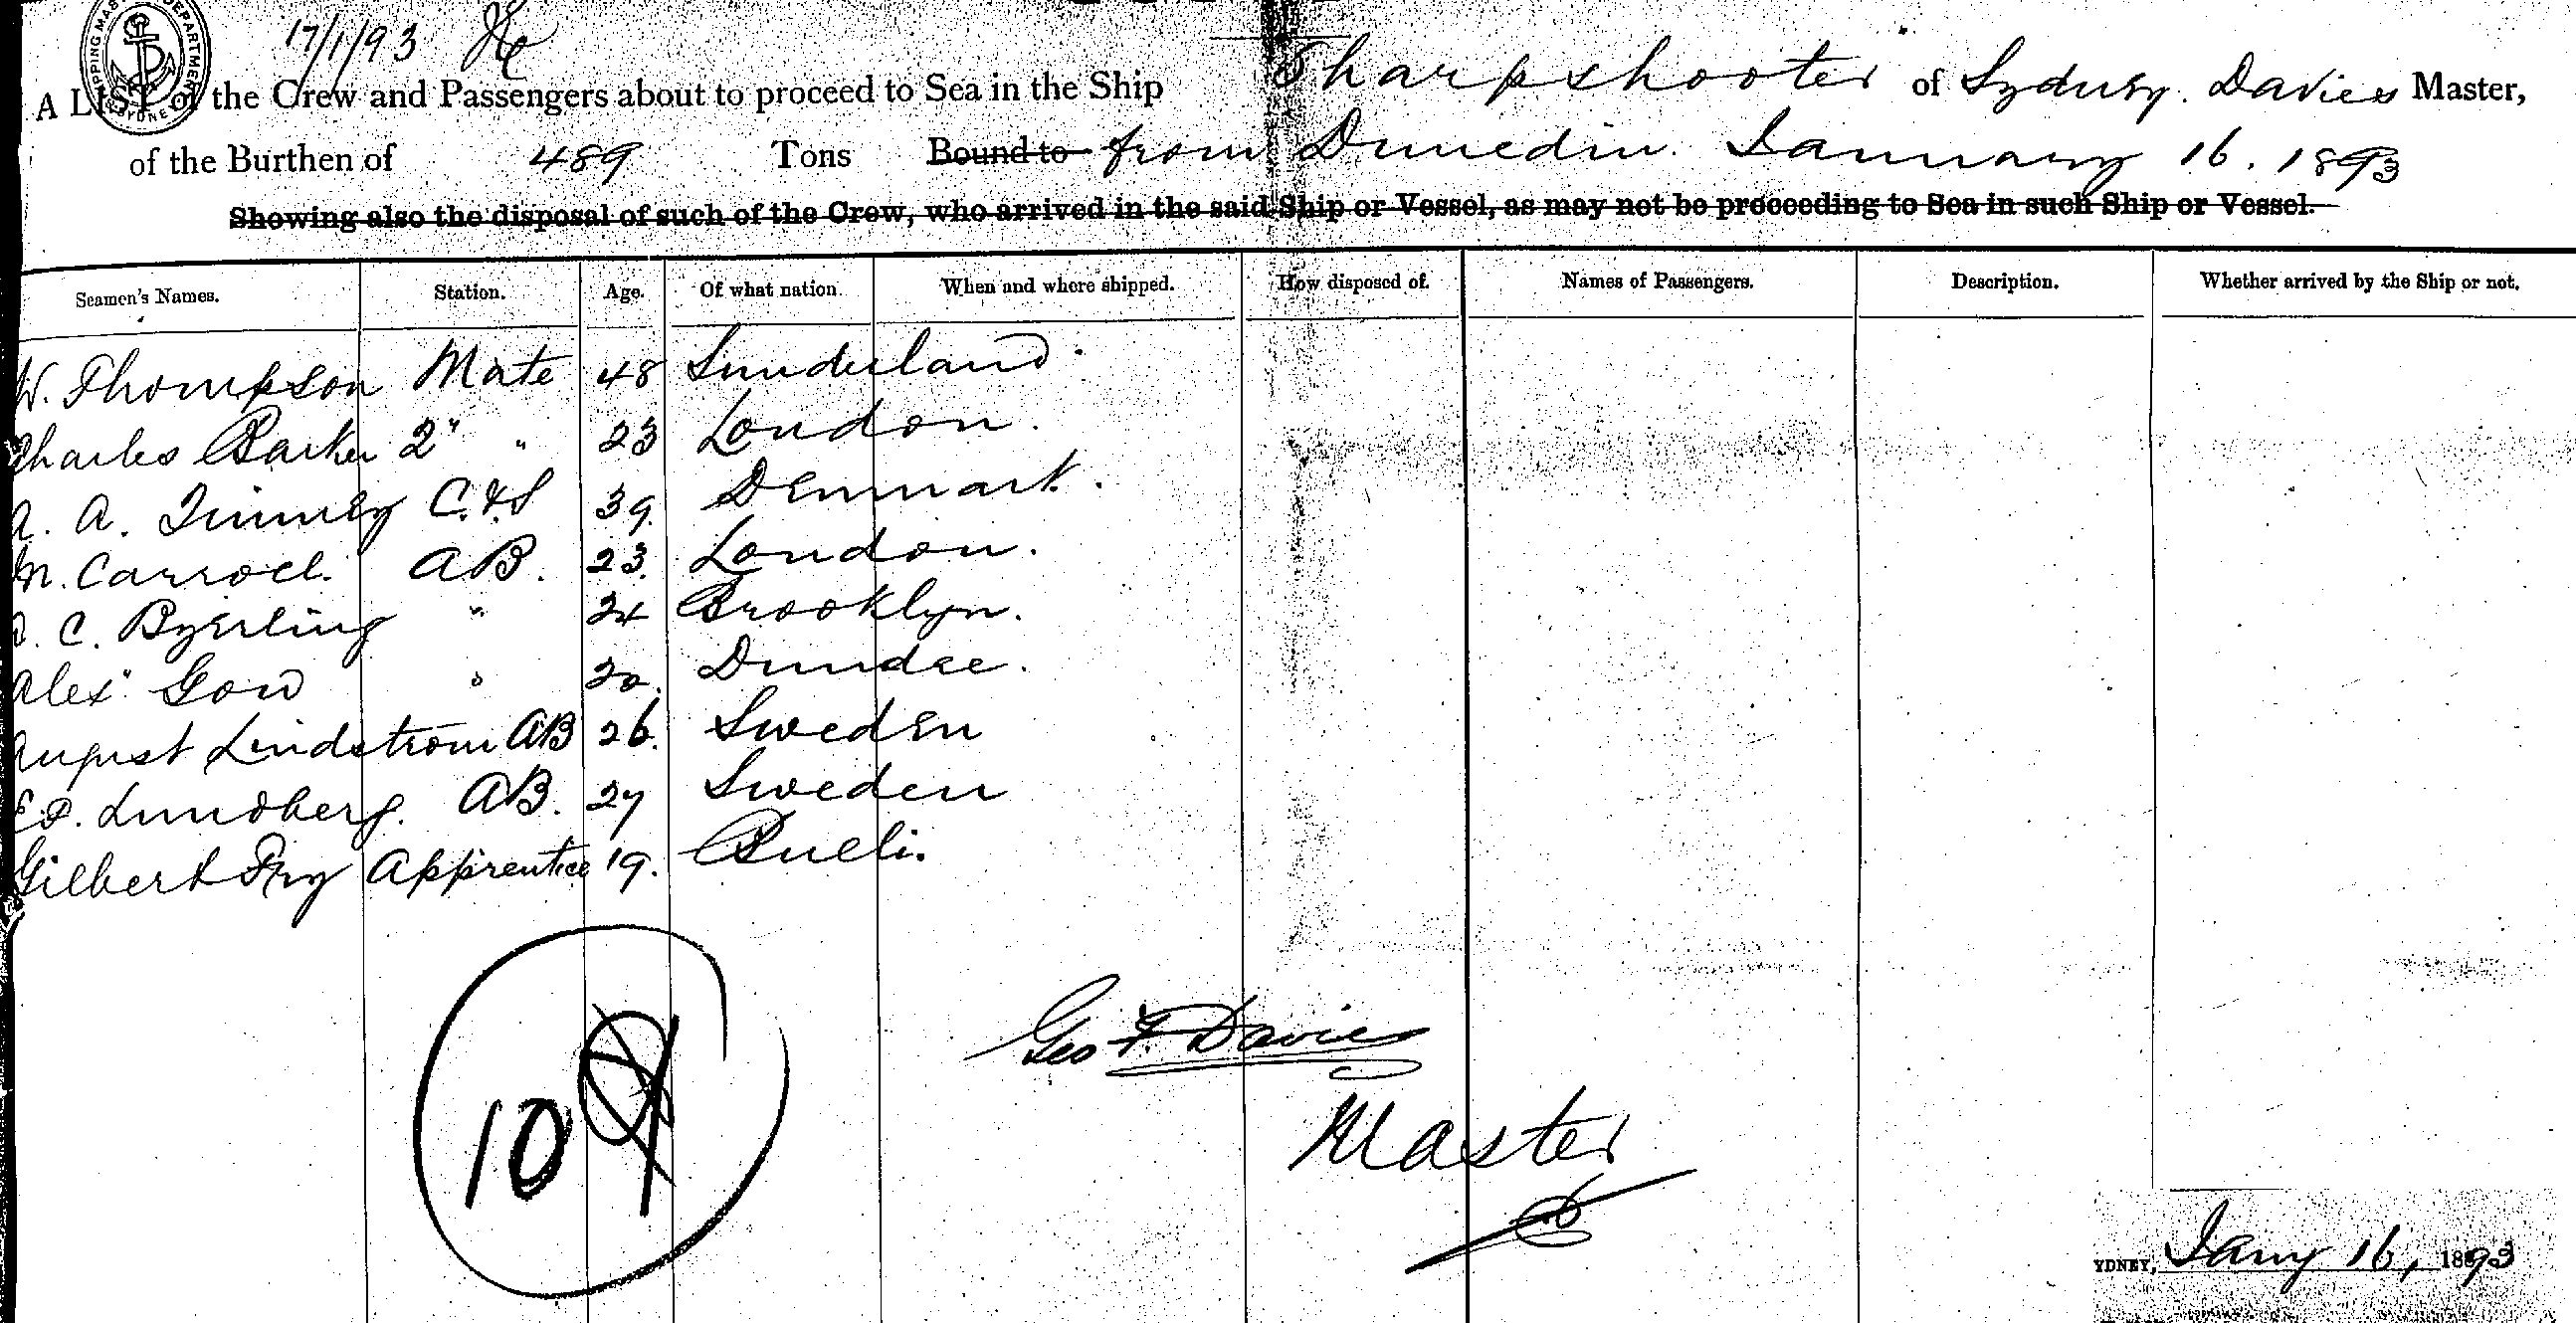 SHIPPING MAS DEPARTMENT SYDNEY
17/1/93
A LIST of the Crew and Passengers about to proceed to Sea in the Ship Sharpshooter of Sydney. Davies Master,
of the Burthen of 489 Tons Bound to from Dunedin. January 16. 1893
Showing also the disposal of such of the Crew, who arrived in the said Ship or Vessel, as may not be proceeding to Sea in such Ship or Vessel.
Seamen's Names. Station. Age. Of what nation When and where shipped. How disposed of. Names of Passengers. Description. Whether arrived by the Ship or not.
W. Thompson Mate 48 Sunderland
Charles Barker 2" " 23 London.
A. A. C.&S 39. Denmark.
M. Carroll. AB. 23. London.
C. Byerling " 24 Brooklyn.
Alex" Gow " 20. Dundee.
August Lindstrom AB 26. Sweden
E.P. Lundberg. AB. 27 Sweden
Gilbert Fry Apprentice 19.
10
Geo F. Davies
Master
YDNEY, Jany 16, 1893